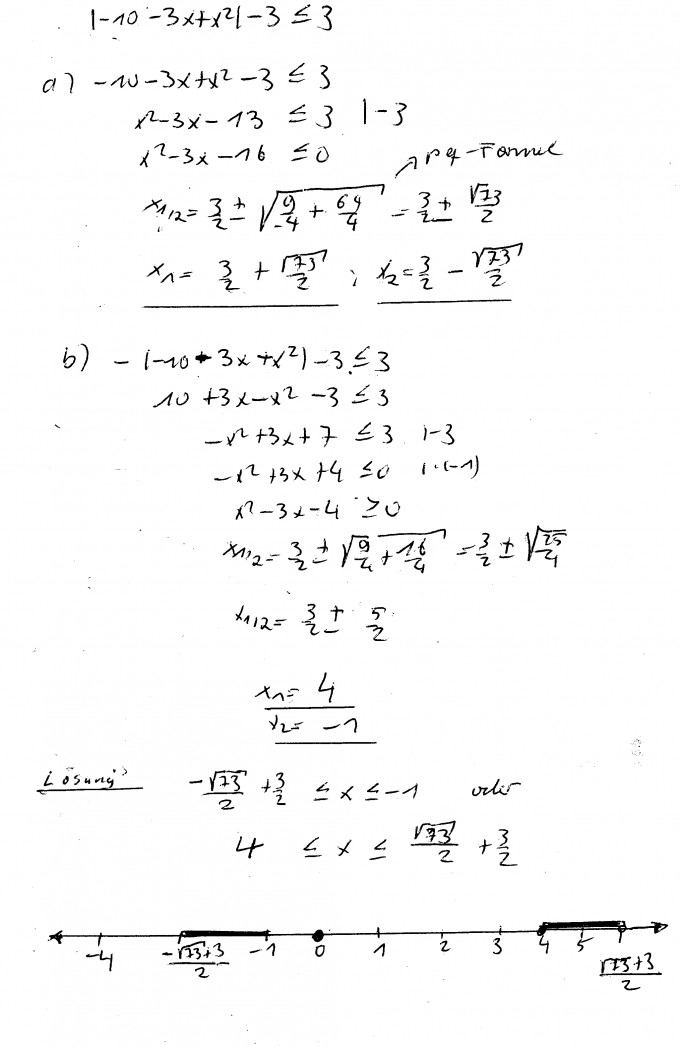 |-10 -3x+x²| -3 ≤ 3
a) -10-3x+x² -3 ≤ 3
x²-3x-13 ≤ 3 |-3
x²-3x-16 ≤ 0
↗ pq-Formel
x1,2 = 3/2 ± √(9/4 + 64/4) = 3/2 ± √73/2
x1 = 3/2 + √73/2 ; x2 = 3/2 - √73/2
b) -(-10 - 3x + x²) - 3 ≤ 3
10 +3x-x² -3 ≤ 3
-x²+3x+7 ≤ 3 |-3
-x²+3x+4 ≤ 0 |·(-1)
x²-3x-4 ≥ 0
x1,2 = 3/2 ± √(9/4 + 16/4) = 3/2 ± √(25/4)
x1,2 = 3/2 ± 5/2
x1 = 4
x2 = -1
Lösung:
-√73/2 + 3/2 ≤ x ≤ -1 oder
4 ≤ x ≤ √73/2 + 3/2
-4 (-√73+3)/2 -1 0 1 2 3 4 5 (√73+3)/2